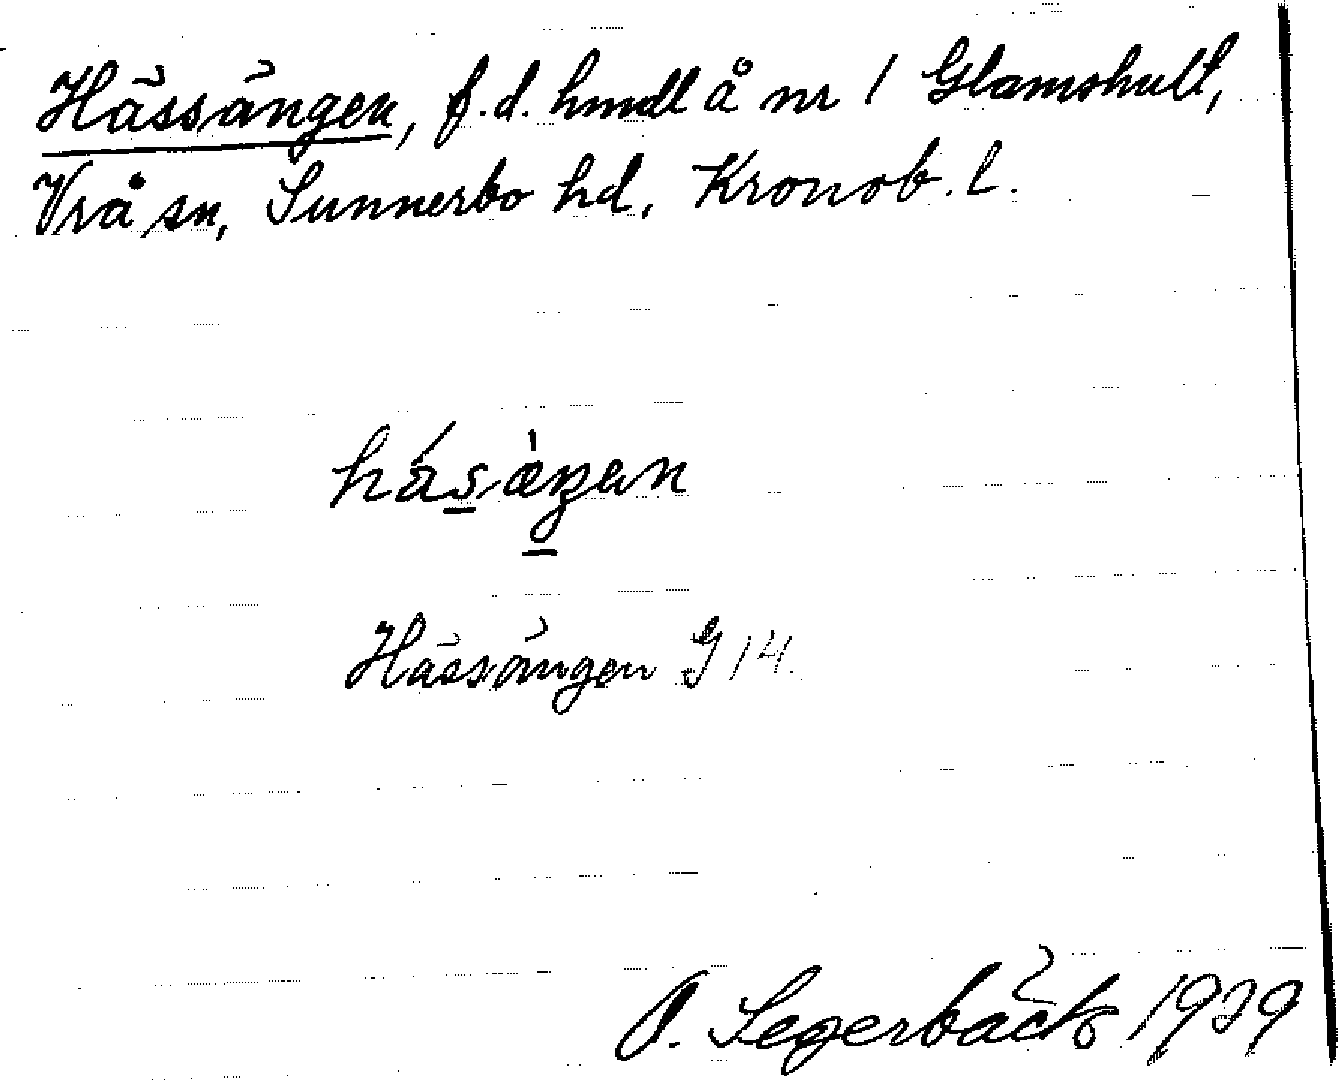 Hässängen, f.d. hmdl å nr 1 Glamshult,
Vrå sn, Sunnerbo hd, Kronob. l.
hásæ̀ŋen
Hässängen G 14.
O. Segerbäck 1929